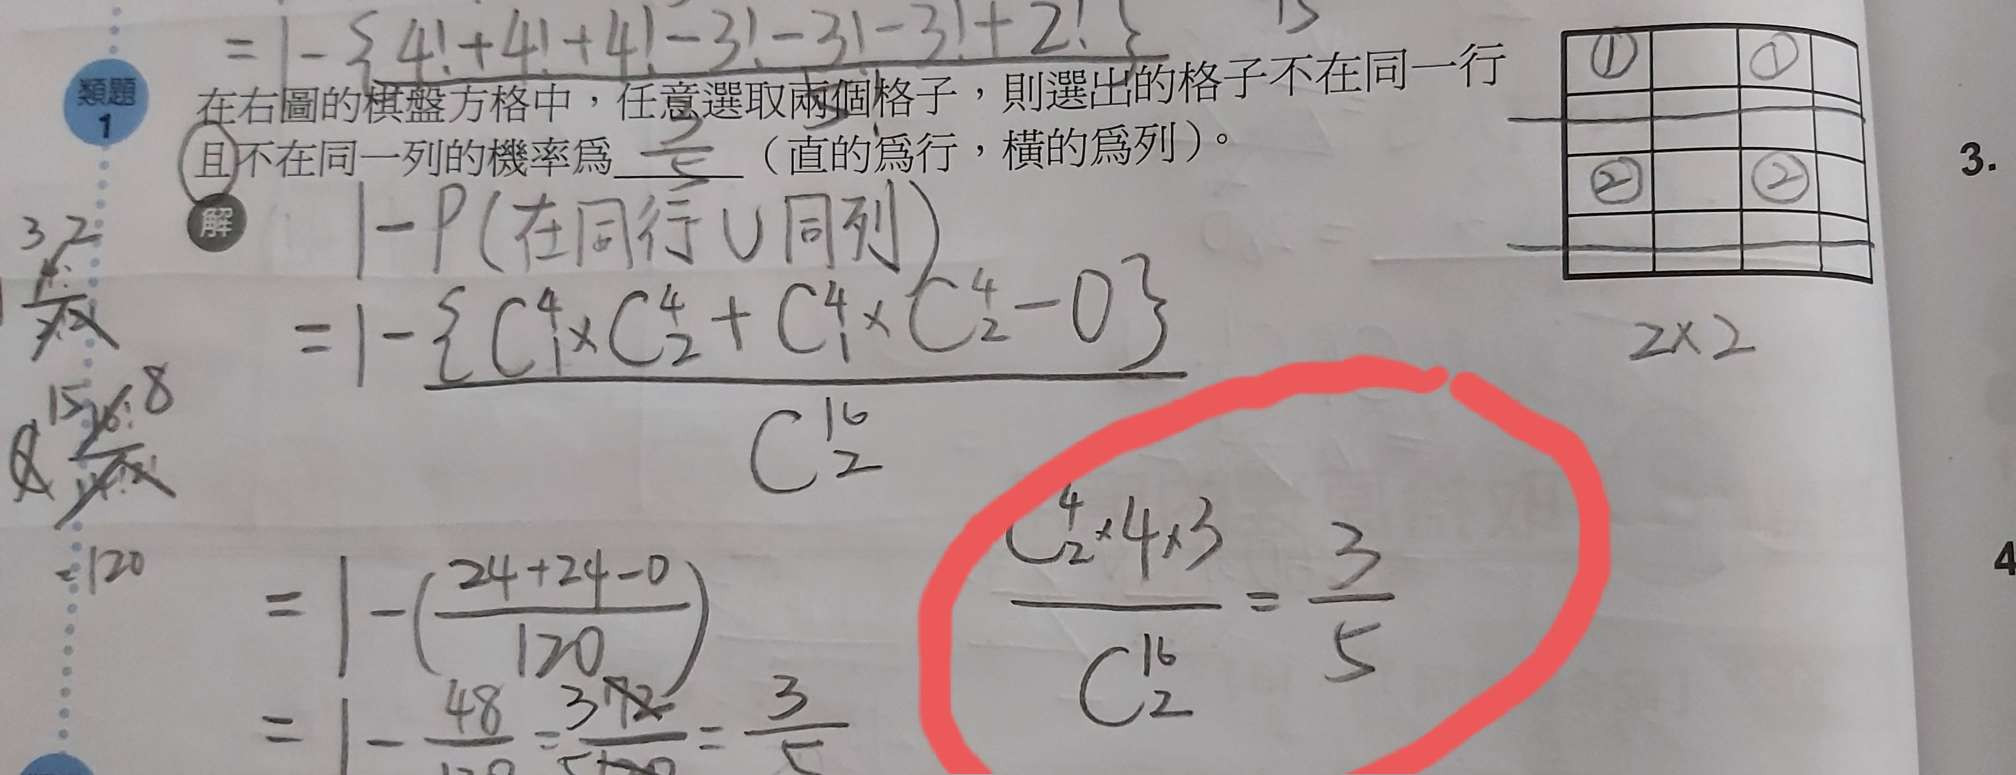 = 1 - {4!+4!+4!-3!-3!-3!+2!}
類題
1
在右圖的棋盤方格中，任意選取兩個格子，則選出的格子不在同一行
且不在同一列的機率為 3/5 （直的為行，橫的為列）。
① ①
② ②
2×2
3.
4
解
1-P(在同行∪同列)
= 1 - {C⁴₁×C⁴₂+C⁴₁×C⁴₂-0}
C¹⁶₂
= 1 - (24+24-0 / 120)
= 1 - 48/120 = 72/120 = 3/5
C⁴₂×4×3 / C¹⁶₂ = 3/5
3 2
15 8
=120